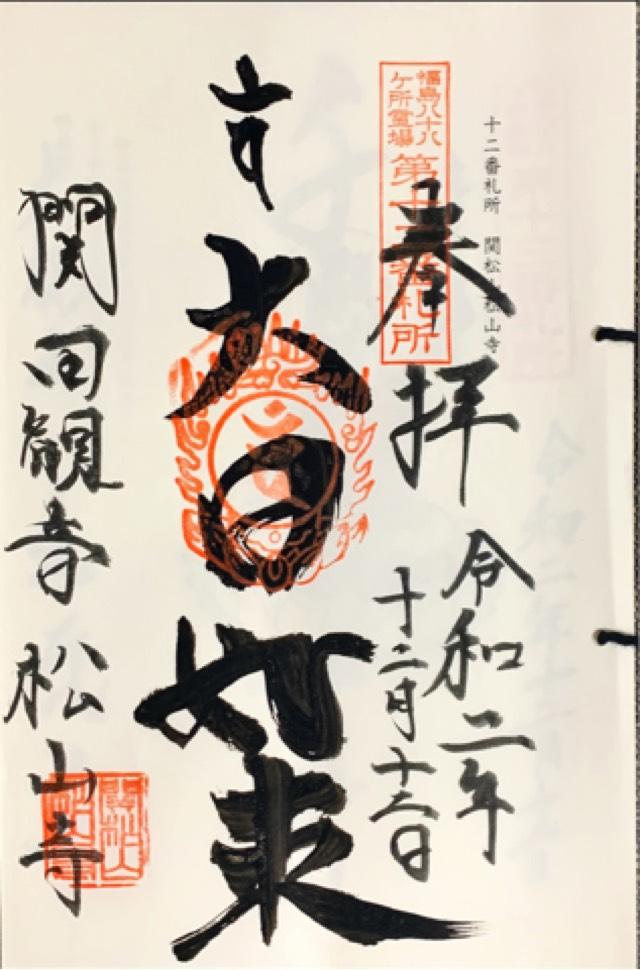 十二番札所 関松山松山寺
福島八十八
ケ所霊場
第十二番札所
奉拝
令和二年
十二月十六日
大日如来
関田観音松山寺